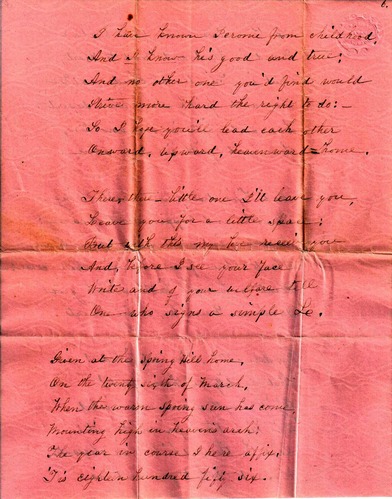 6.
I have known Jerome from childhood,
And I know he's good and true;
And no other one you'd find would
Strive more hard the right to do:-
So I hope you'll lead each other
Onward, upward, heavenward=home.
There, then - little one I'll leave you,
Leave you for a little space;
But with this my receive you
And, before I see your face
Write and of your welfare tell
One who signs a simple L.
Given at the Spring Hill home,
On the twenty sixth of March,
When the warm Spring sun has come
Mounting high in heaven's arch:
The year in course I here affix:
T'is eighteen hundred fifty six.